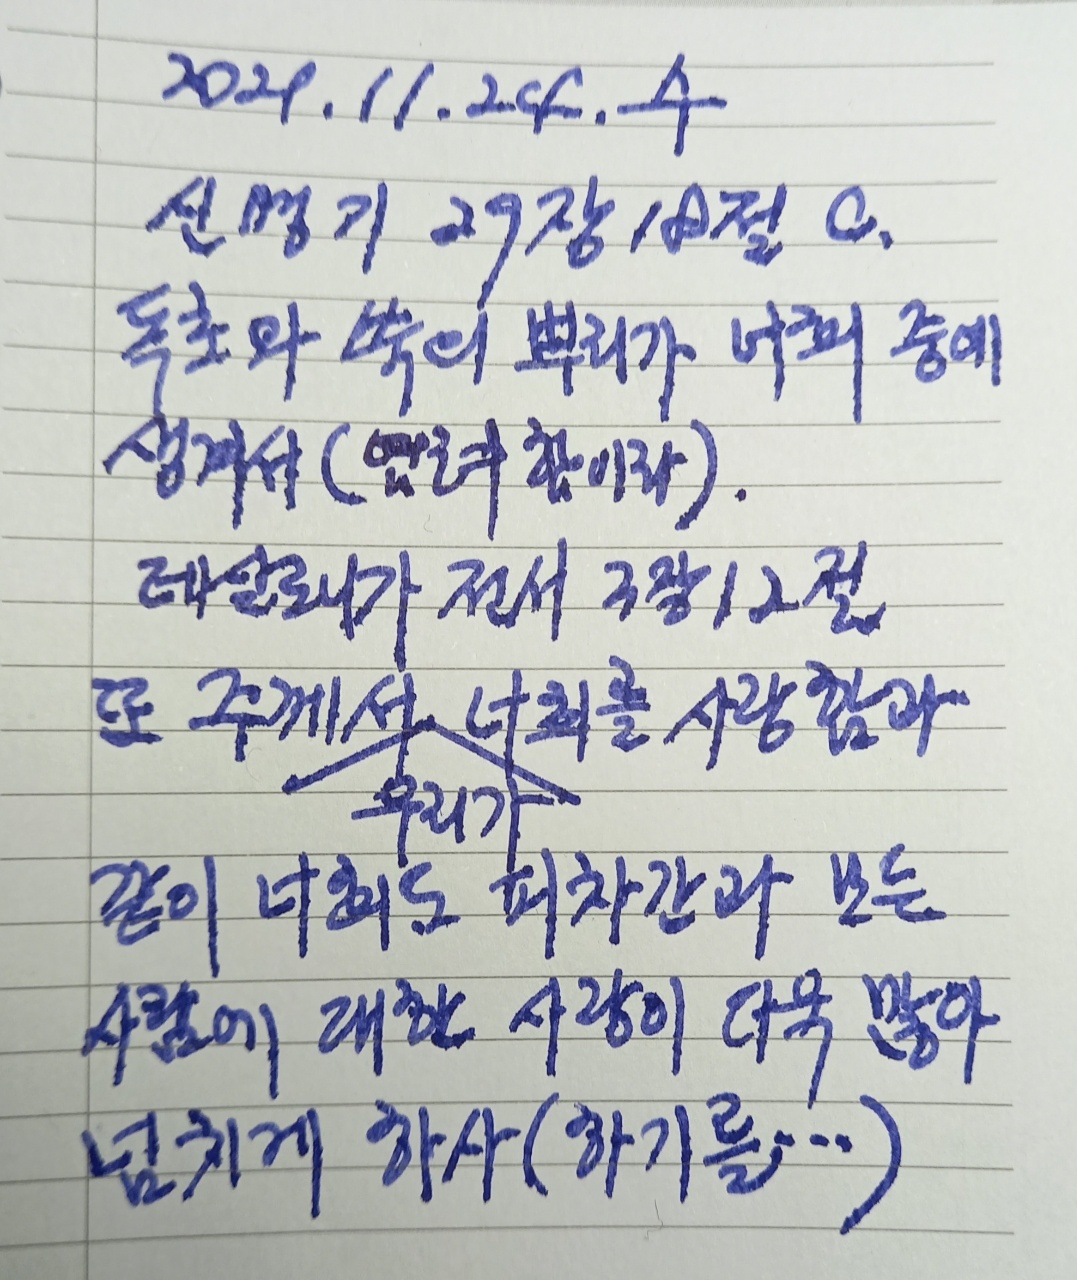 2021.11.24. 수
신명기 29장 18절 C.
독초와 쑥의 뿌리가 너희 중에
생겨서 (염려함이라).
데살로니가 전서 3장 12절
또 주께서 너희를 사랑함과
우리가
같이 너희도 피차간과 모든
사람에 대한 사랑이 더욱 많아
넘치게 하사 (하기를…)